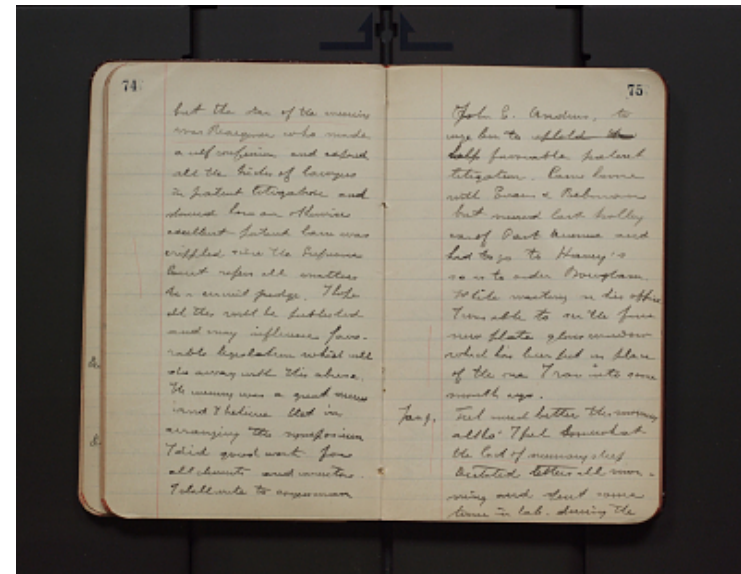 74
but the star of the evening
was                who made
a self confession and exposed
all the tricks of lawyers
in patent litigations and
showed how an otherwise
excellent patent law was
crippled since the Supreme
Court refers all matters
to a circuit judge. I hope
all this will be published
and may influence favo-
rable legislation which will
do away with this abuse.
The evening was a great success
and I believe that in
arranging the symposium
I did good work for
all chemists and inventors.
I shall write to congressman
75
John E. Andrus, to
urge him to uphold
help favorable patent
litigation. Came home
with Evans &
but missed last trolley
car of Park Avenue and
had to go to Haney's
so as to order Brougham.
While waiting in his office
I was able to see the fine
new plate glass window
which has been put in place
of the one I ran into some
month ago.
Jan 9. Feel much better this morning
altho' I feel somewhat
the lack of necessary sleep
Dictated letters all mor-
ning and spent some
time in lab. during the